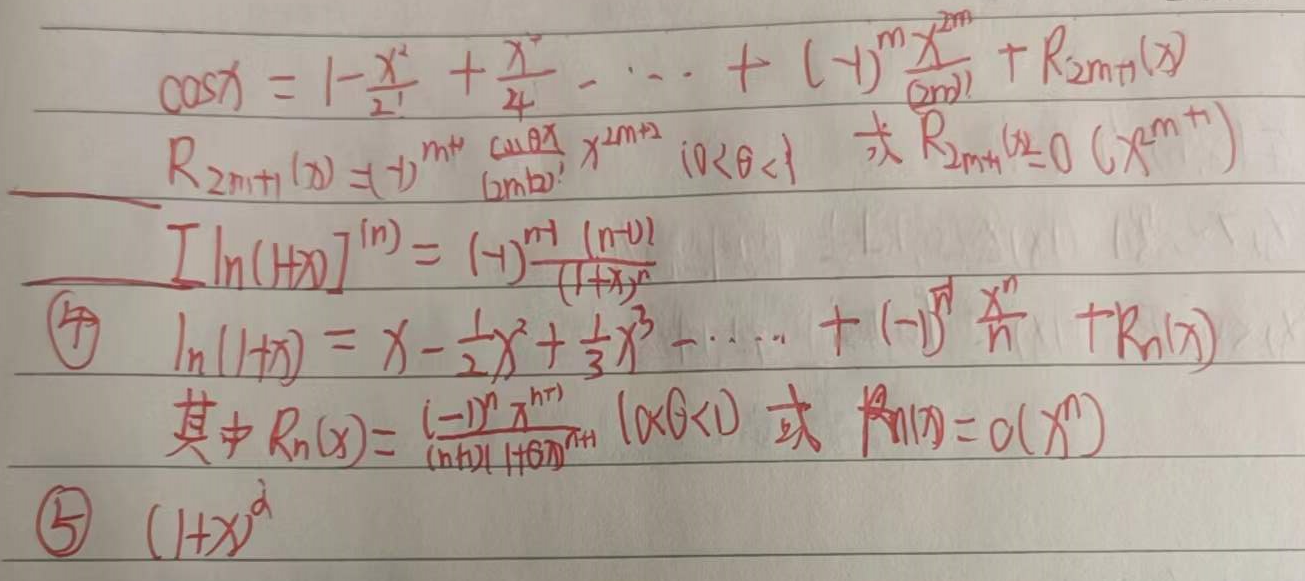 cosx = 1 - x²/2! + x⁴/4 - ··· + (-1)^m x^{2m}/(2m)! + R_{2m+1}(x)
R_{2m+1}(x) = (-1)^{m+1} cosθx/(2m+2)! x^{2m+2} (0<θ<1 或 R_{2m+1}(x)=o(x^{2m+1})
[ln(1+x)]^{(n)} = (-1)^{n-1} (n-1)!/(1+x)^n
④ ln(1+x) = x - 1/2 x² + 1/3 x³ - ····· + (-1)^{n-1} x^n/n + Rn(x)
其中 Rn(x) = (-1)^n x^{n+1}/(n+1)(1+θx)^{n+1} (0<θ<1) 或 Rn(x) = o(x^n)
⑤ (1+x)^α